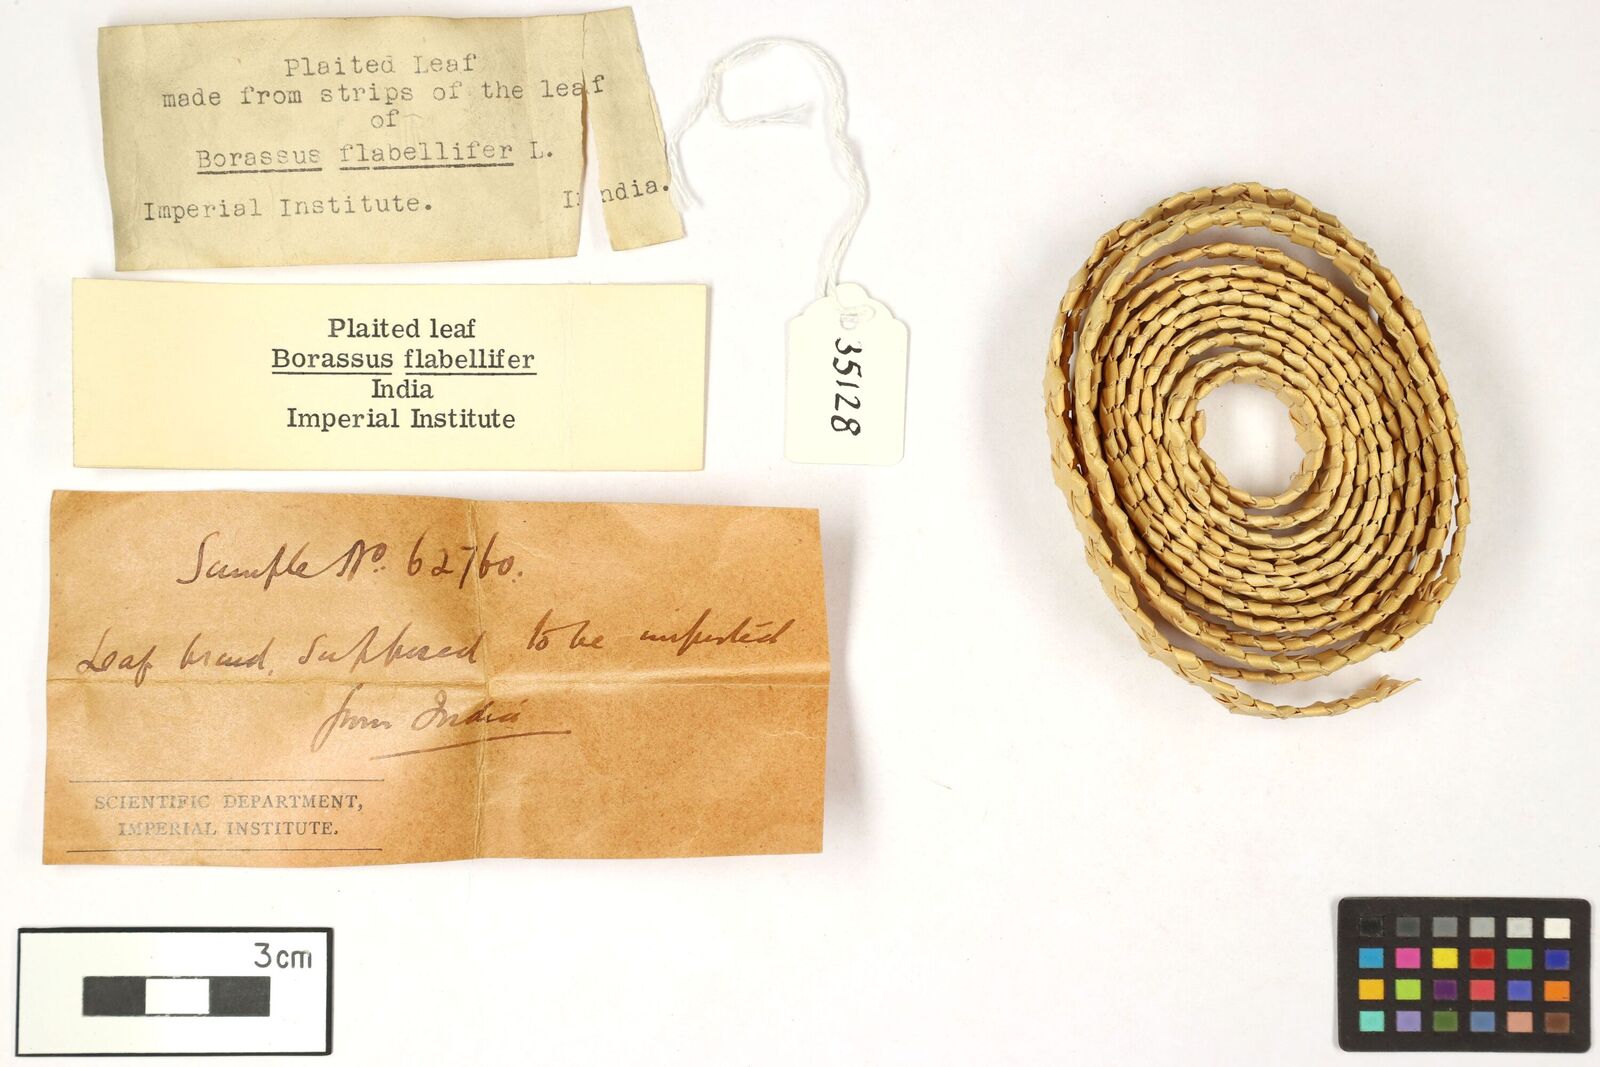 Plaited Leaf
made from strips of the leaf
of
Borassus flabellifer L.
Imperial Institute. India.
Plaited leaf
Borassus flabellifer
India
Imperial Institute
35128
Sample No. 62760.
Leaf braid, supposed to be imported
from India
SCIENTIFIC DEPARTMENT,
IMPERIAL INSTITUTE.
3cm